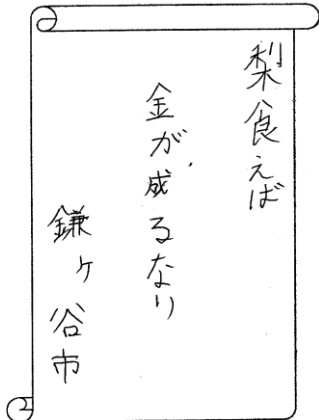 梨食えば
金が成るなり
鎌ヶ谷市